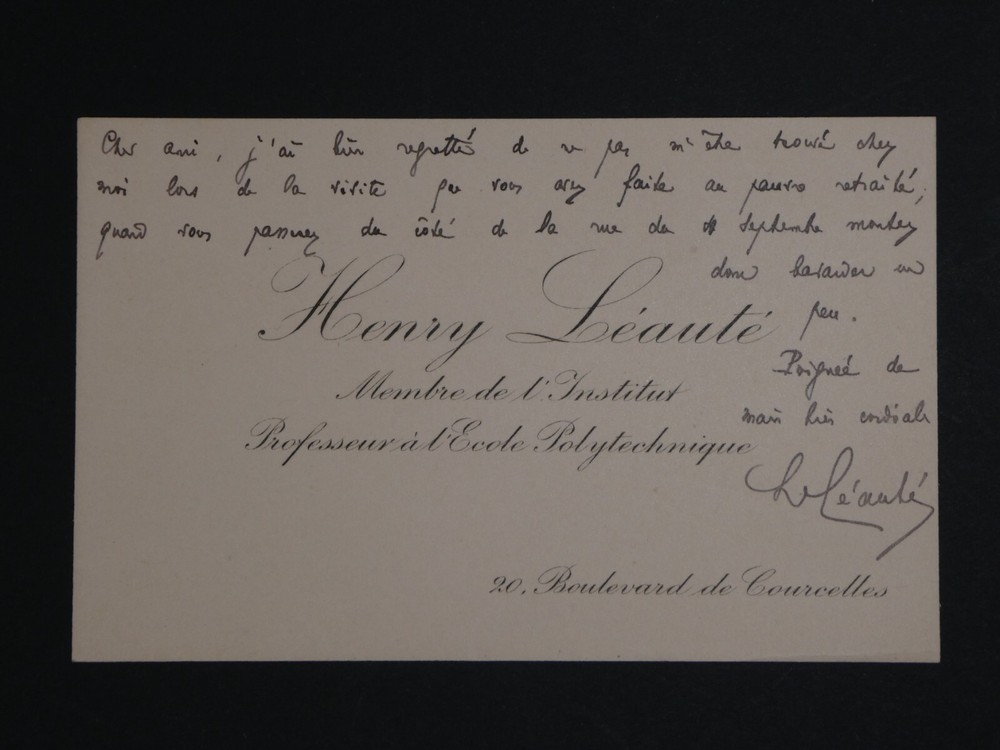 Cher ami, j'ai bien regretté de ne pas m'être trouvé chez
moi lors de la visite que vous avez faite au pauvre retraité;
quand vous passerez du côté de la rue du 4 Septembre montez
donc bavarder un
peu.
Poignée de
main bien cordiale
H Léauté
Henry Léauté
Membre de l'Institut
Professeur à l'Ecole Polytechnique
20, Boulevard de Courcelles